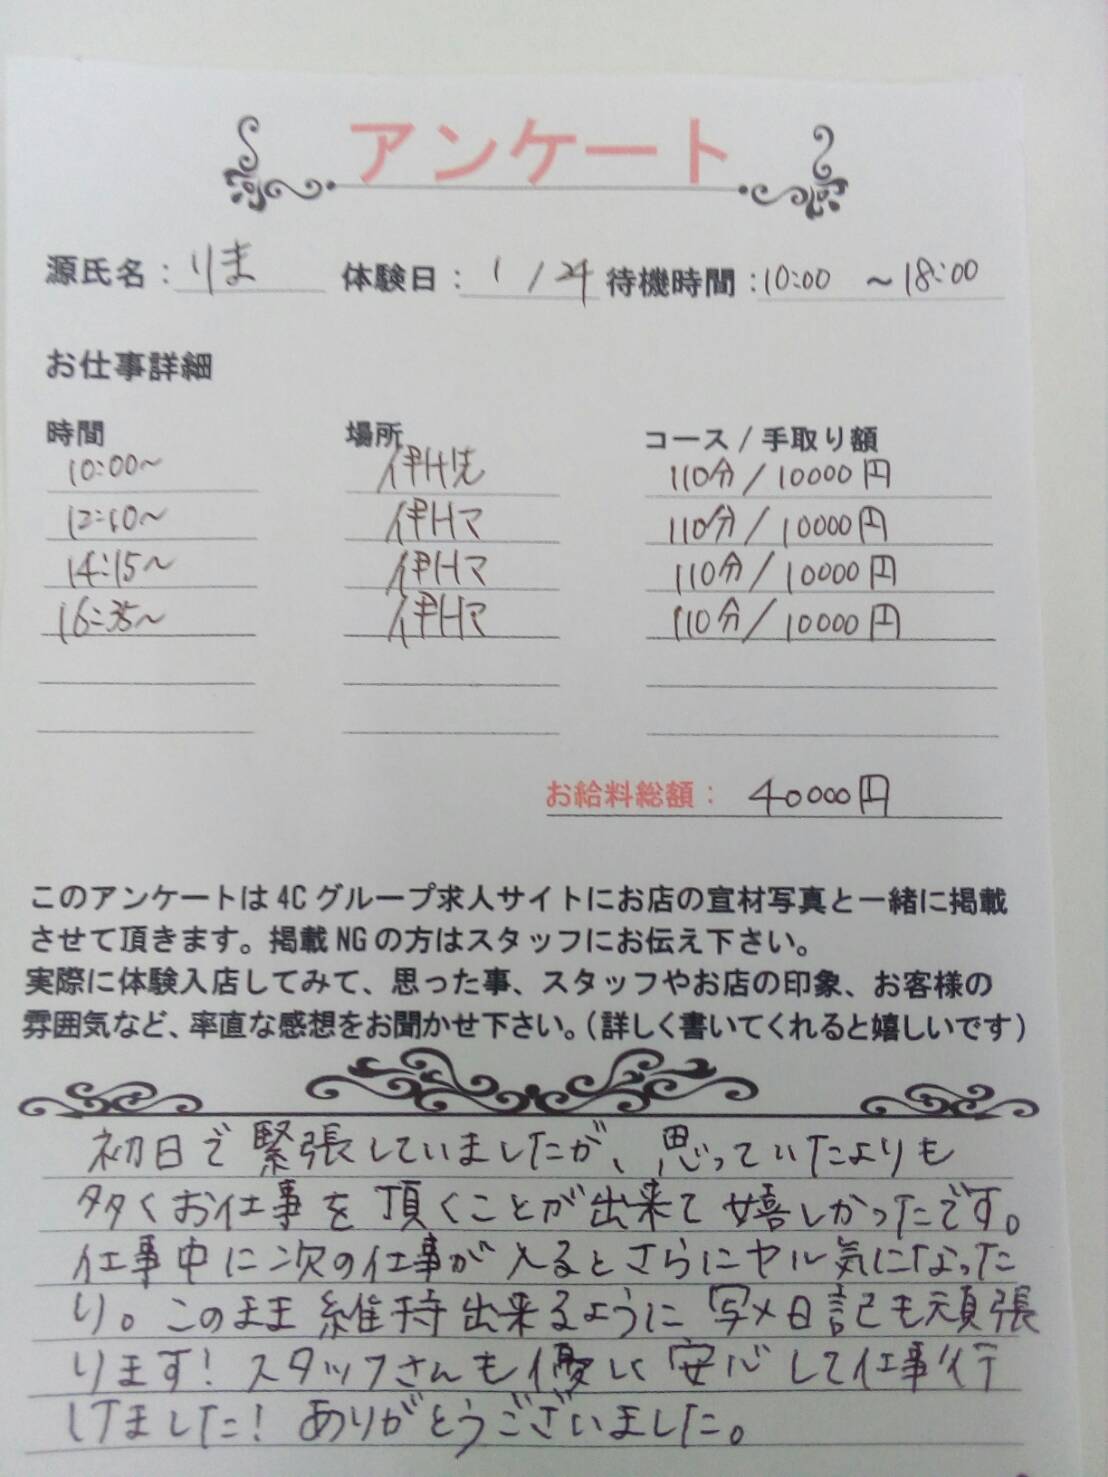 アンケート
源氏名：りま 体験日：1/24 待機時間：10:00 ～18:00
お仕事詳細
時間 場所 コース/手取り額
10:00～ 伊H洗 110分/10000円
12:10～ 伊Hマ 110分/10000円
14:15～ 伊Hマ 110分/10000円
16:35～ 伊Hマ 110分/10000円
お給料総額： 40000円
このアンケートは4Cグループ求人サイトにお店の宣材写真と一緒に掲載
させて頂きます。掲載NGの方はスタッフにお伝え下さい。
実際に体験入店してみて、思った事、スタッフやお店の印象、お客様の
雰囲気など、率直な感想をお聞かせ下さい。（詳しく書いてくれると嬉しいです）
初日で緊張していましたが、思っていたよりも
多くお仕事を頂くことが出来て嬉しかったです。
仕事中に次の仕事が入るとさらにヤル気になった
り。このまま維持出来るように写メ日記も頑張
ります！スタッフさんも優しく安心して仕事行
けました！ありがとうございました。